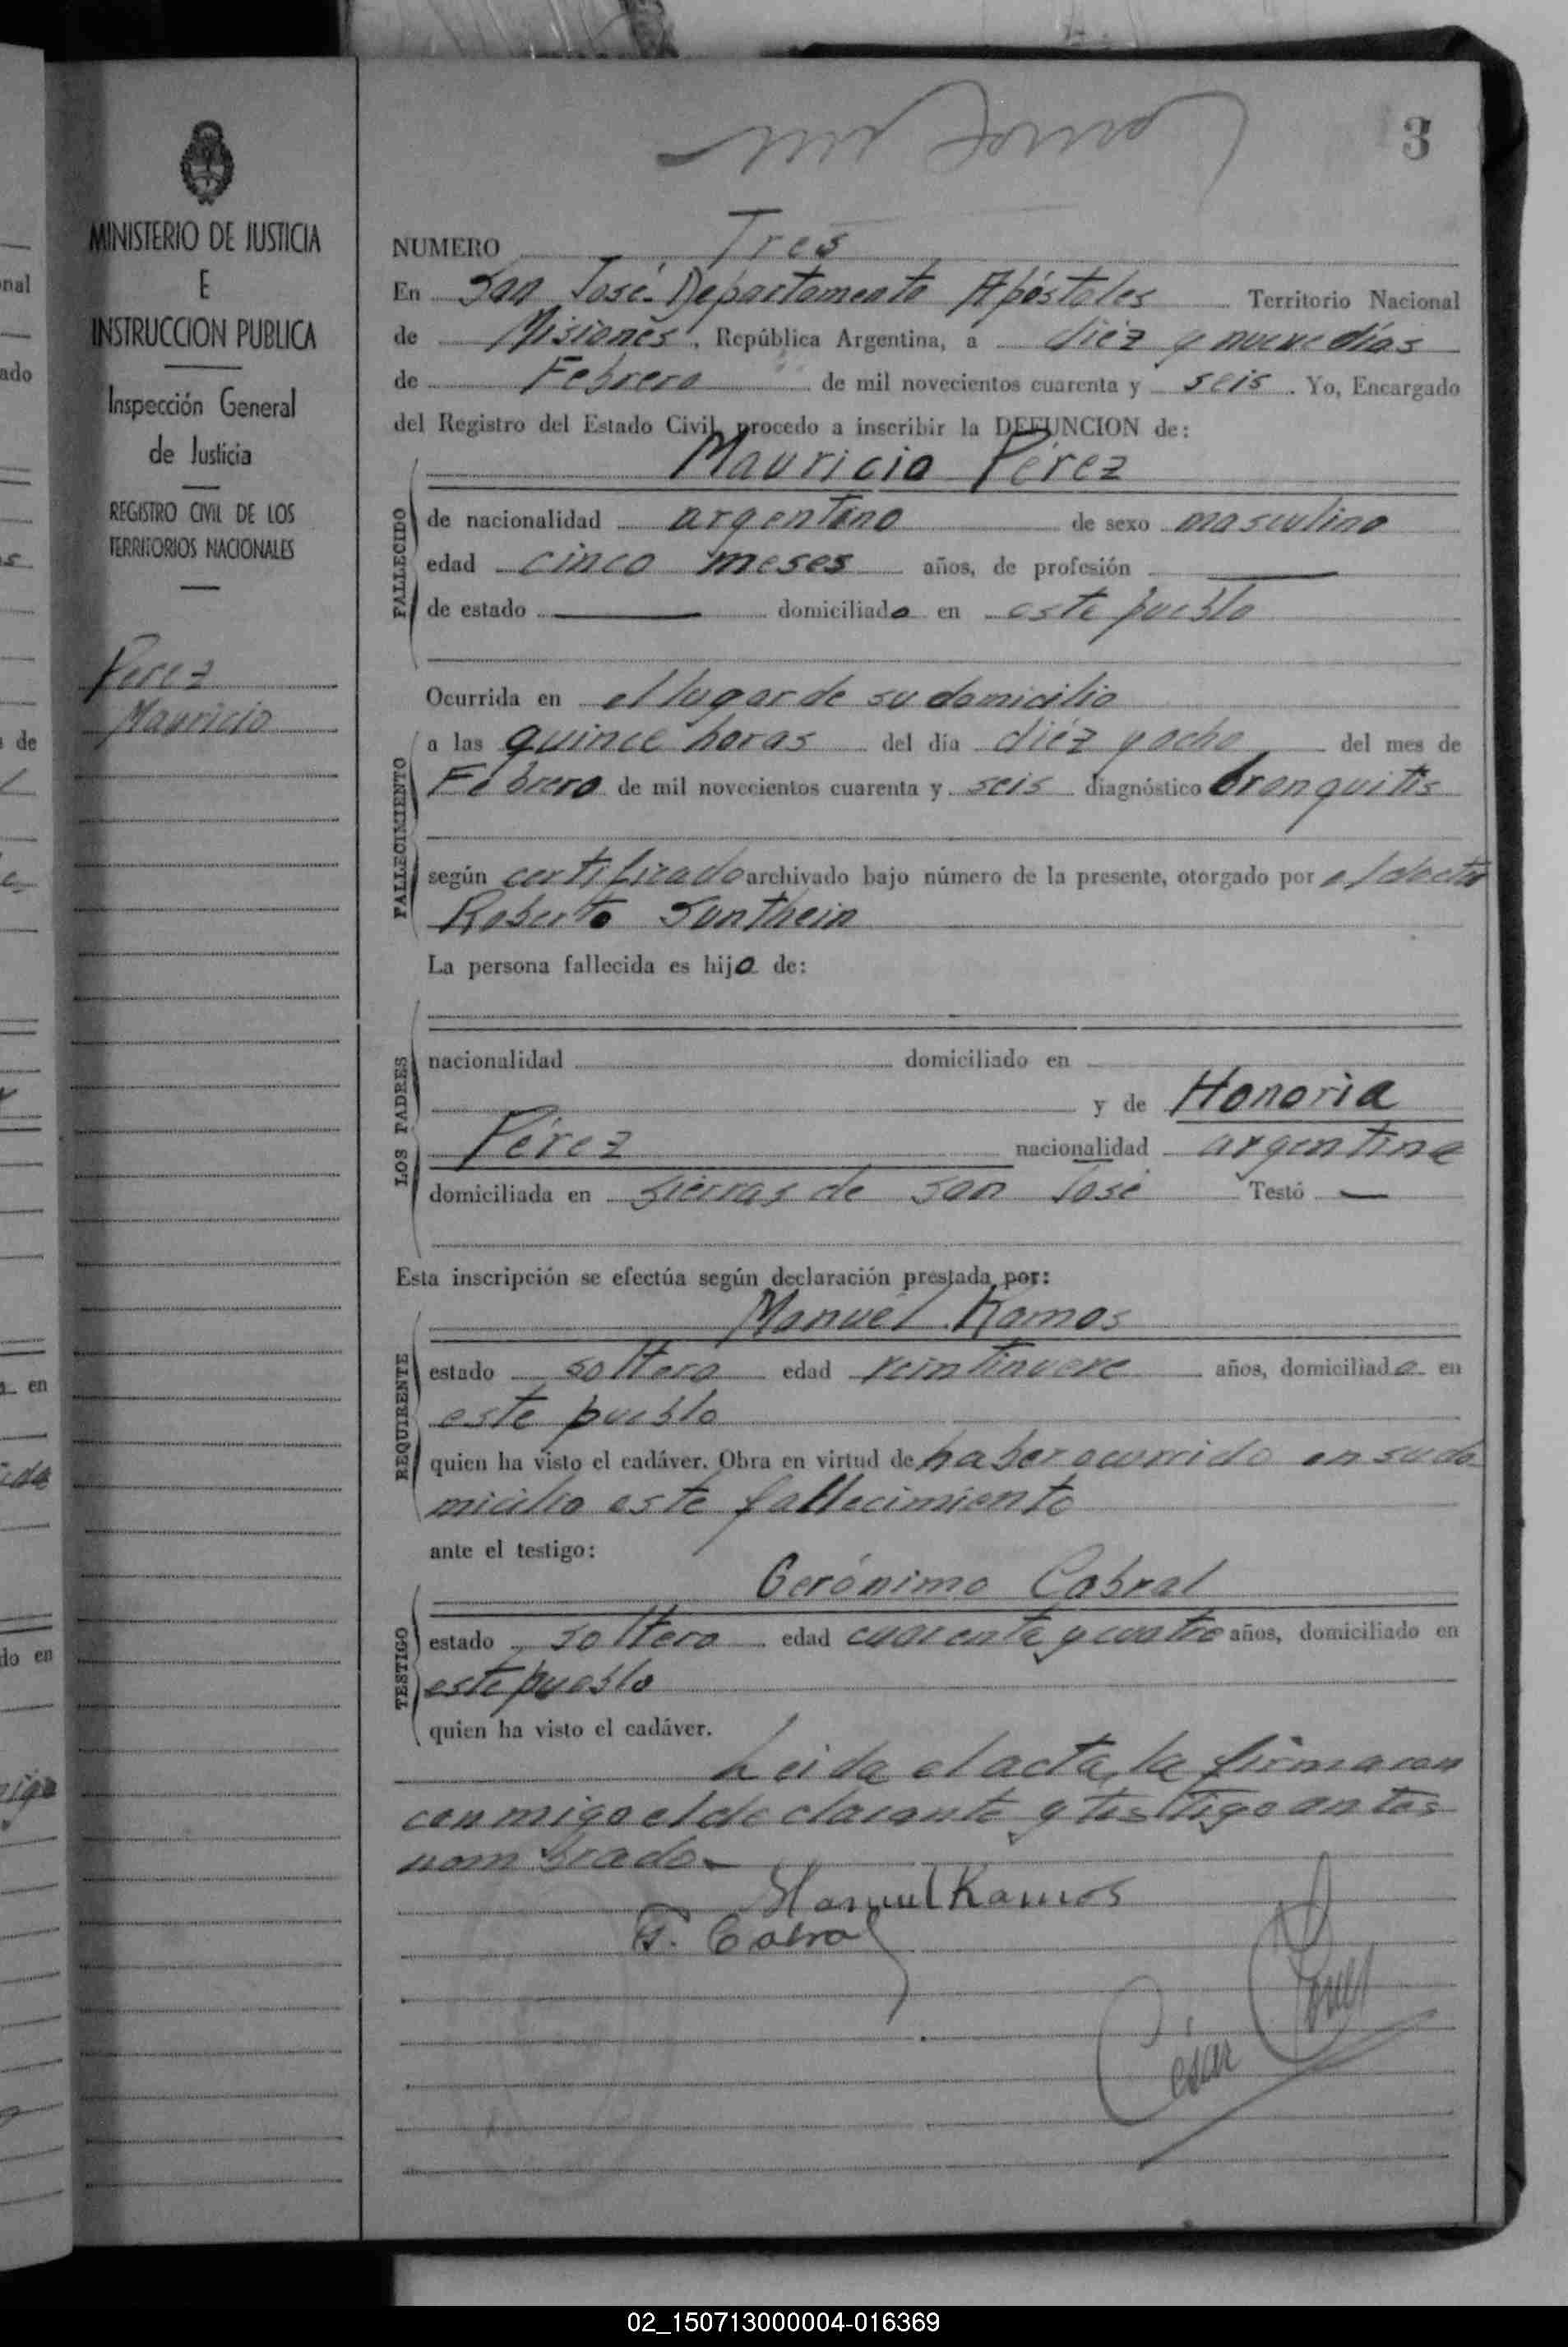 3
MINISTERIO DE JUSTICIA
E
INSTRUCCION PUBLICA
Inspección General
de Justicia
REGISTRO CIVIL DE LOS
TERRITORIOS NACIONALES
Perez
Mauricio
NUMERO Tres
En San José. Departamento Apóstoles Territorio Nacional
de Misiones, República Argentina, a diéz y nueve días
de Febrero de mil novecientos cuarenta y seis. Yo, Encargado
del Registro del Estado Civil, procedo a inscribir la DEFUNCION de:
Mauricio Pérez
FALLECIDO
de nacionalidad argentino de sexo masculino
edad cinco meses años, de profesión —
de estado — domiciliado en este pueblo
FALLECIMIENTO
Ocurrida en el lugar de su domicilio
a las quince horas del día diéz y ocho del mes de
Febrero de mil novecientos cuarenta y seis diagnóstico bronquitis
según certificado archivado bajo número de la presente, otorgado por el doctor
Roberto Sunthein
La persona fallecida es hijo de:
LOS PADRES
nacionalidad domiciliado en
y de Honoria
Pérez nacionalidad argentina
domiciliada en sierras de San José Testó —
Esta inscripción se efectúa según declaración prestada por:
Manuel Ramos
REQUIRENTE
estado soltero edad veintinueve años, domiciliado en
este pueblo
quien ha visto el cadáver. Obra en virtud de haber ocurrido en su do
micilio este fallecimiento
ante el testigo:
Gerónimo Cabral
TESTIGO
estado soltero edad cuarenta y cuatro años, domiciliado en
este pueblo
quien ha visto el cadáver.
Leida el acta, la firmaron
conmigo el declarante y testigo antes
nombrado.
Manuel Ramos
G. Cabral
César
02_150713000004-016369